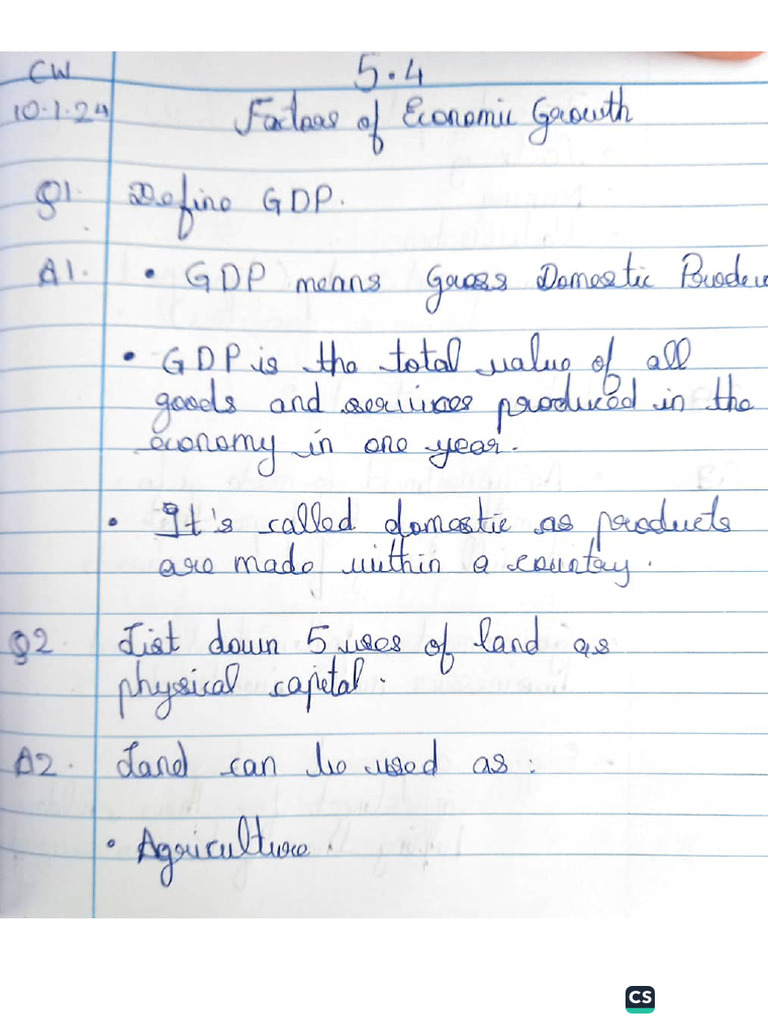 CW
5.4
10.1.24
Factors of Economic Growth
Q1. Define GDP.
A1. • GDP means Gross Domestic Produc
• GDP is the total value of all
goods and services produced in the
economy in one year.
• It's called domestic as products
are made within a country.
Q2. List down 5 uses of land as
physical capital.
A2. Land can be used as:
• Agriculture.
CS